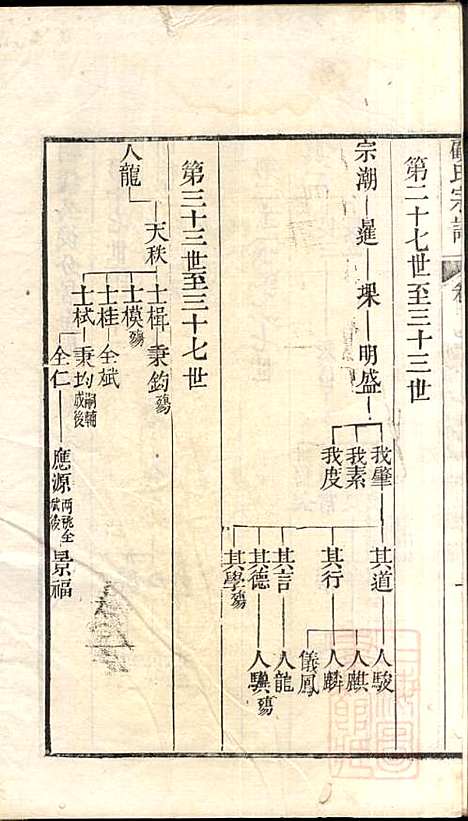 氏宗譜
第二十七世至三十三世
宗潮 暹 堁 明盛
我肇 我素 我度
其道 其行 其言 其德 其學殤
人駿 人麒 人麟 儀鳳 人龍 人驥殤
第三十三世至三十七世
人龍
天秩
士楫 士模殤 士桂 士栻
秉鈞殤 全斌 秉均嗣輔成後 全仁
應源兩祧全斌後 景福